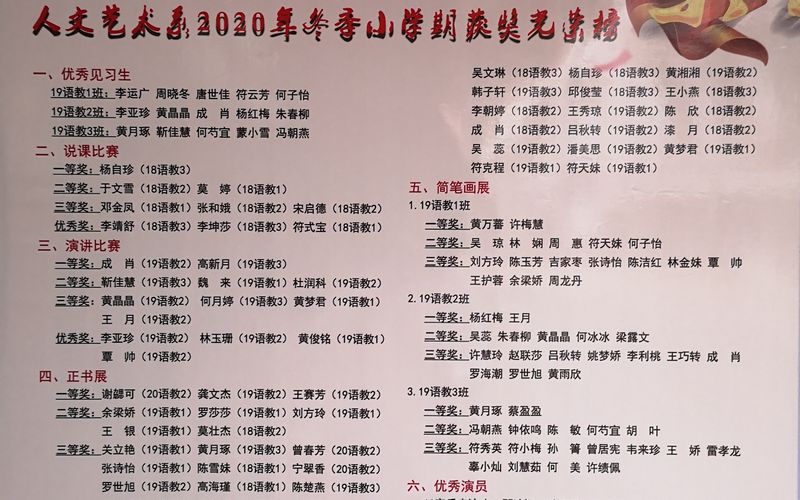 人文艺术系2020年冬季小学期获奖光荣榜
一、优秀见习生
19语教1班：李运广 周晓冬 唐世佳 符云芳 何子怡
19语教2班：李亚珍 黄晶晶 成 肖 杨红梅 朱春柳
19语教3班：黄月琢 靳佳慧 何芍宜 蒙小雪 冯朝燕
二、说课比赛
一等奖：杨自珍（18语教3）
二等奖：于文雪（18语教2）莫 婷（18语教1）
三等奖：邓金凤（18语教1）张和娥（18语教2）宋启德（18语教2）
优秀奖：李靖舒（18语教3）李坤莎（18语教3）符式宝（18语教1）
三、演讲比赛
一等奖：成 肖（19语教2）高新月（19语教3）
二等奖：靳佳慧（19语教3）魏 来（19语教1）杜润科（19语教2）
三等奖：黄晶晶（19语教2） 何月婷（19语教3）黄梦君（19语教1）
王 月（19语教2）
优秀奖：李亚珍（19语教2） 林玉珊（19语教2） 黄俊铭（19语教1）
覃 帅（19语教2）
四、正书展
一等奖：谢勰可（20语教2）龚文杰（19语教2）王赛芳（19语教2）
二等奖：余梁娇（19语教1）罗莎莎（19语教1）刘方玲（19语教1）
王 银（19语教1）莫壮杰（18语教2）
三等奖：关立艳（19语教1）黄月琢（19语教3）曾春芳（20语教2）
张诗怡（19语教1）陈雪妹（18语教1）宁翠香（20语教2）
罗世旭（19语教2）高海瑾（18语教1）陈楚燕（19语教3）
吴文琳（18语教3）杨自珍（18语教3）黄湘湘（19语教2）
韩子轩（19语教1）邱俊莹（18语教3）王小燕（18语教3）
李朝婷（18语教2）王秀琼（19语教2）陈 欣（18语教2）
成 肖（19语教2）吕秋转（19语教2）漆 月（18语教2）
吴 蕊（19语教2）潘美思（19语教2）黄梦君（19语教1）
符克程（19语教1）符天妹（19语教1）
五、简笔画展
1.19语教1班
一等奖：黄万蕃 许梅慧
二等奖：吴 琼 林 娴 周 惠 符天妹 何子怡
三等奖：刘方玲 陈玉芳 吉家枣 张诗怡 陈洁红 林金妹 覃 帅
王护蓉 余梁娇 周龙丹
2.19语教2班
一等奖：杨红梅 王月
二等奖：吴蕊 朱春柳 黄晶晶 何冰冰 梁露文
三等奖：许慧玲 赵联莎 吕秋转 姚梦娇 李利桃 王巧转 成 肖
罗海潮 罗世旭 黄雨欣
3.19语教3班
一等奖：黄月琢 蔡盈盈
二等奖：冯朝燕 钟依鸣 陈 敏 何芍宜 胡 叶
三等奖：符秀英 符小梅 孙 箐 曾居宪 韦来珍 王 娇 雷孝龙
辜小灿 刘慧茹 何 美 许绩佩
六、优秀演员